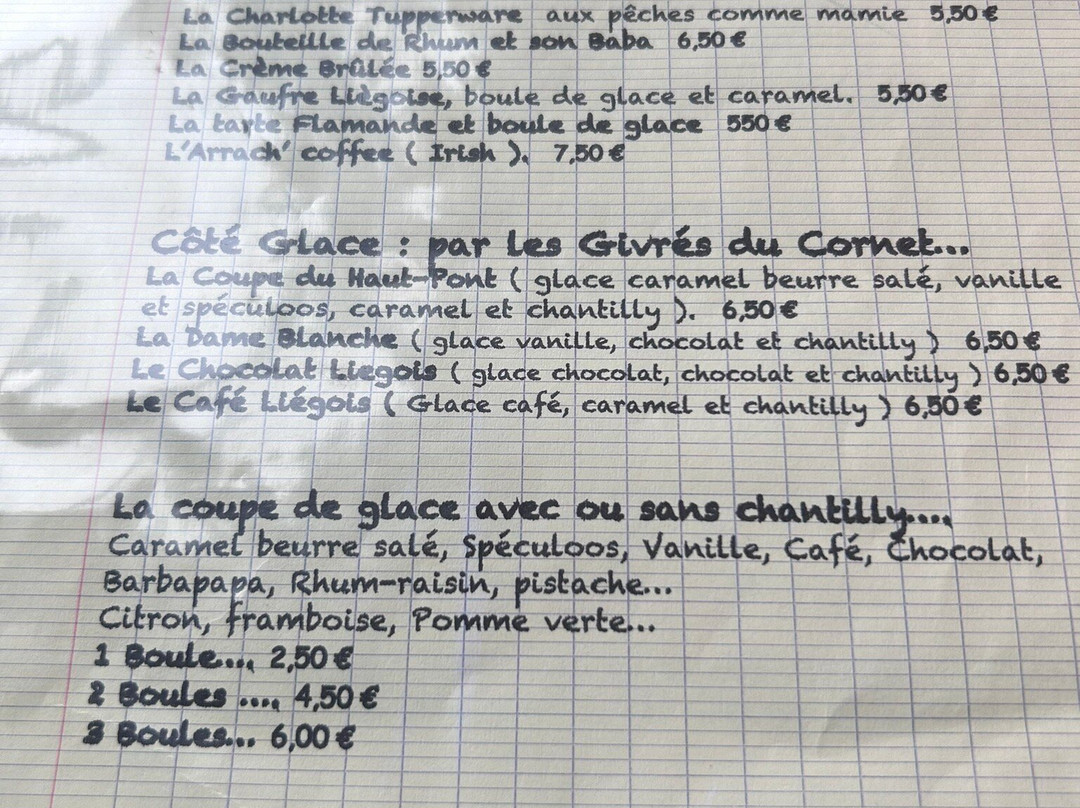 La Charlotte Tupperware aux pêches comme mamie 5,50 €
La Bouteille de Rhum et son Baba 6,50 €
La Crème Brûlée 5,50 €
La Gaufre Liègoise, boule de glace et caramel. 5,50 €
La tarte Flamande et boule de glace 550 €
L'Arrach' coffee ( Irish ). 7,50 €
Côté Glace : par les Givrés du Cornet...
La Coupe du Haut-Pont ( glace caramel beurre salé, vanille
et spéculoos, caramel et chantilly ). 6,50 €
La Dame Blanche ( glace vanille, chocolat et chantilly ) 6,50 €
Le Chocolat Liegois ( glace chocolat, chocolat et chantilly ) 6,50 €
Le Café Liégois ( Glace café, caramel et chantilly ) 6,50 €
La coupe de glace avec ou sans chantilly....
Caramel beurre salé, Spéculoos, Vanille, Café, Chocolat,
Barbapapa, Rhum-raisin, pistache...
Citron, framboise, Pomme verte...
1 Boule.... 2,50 €
2 Boules .... 4,50 €
3 Boules... 6,00 €